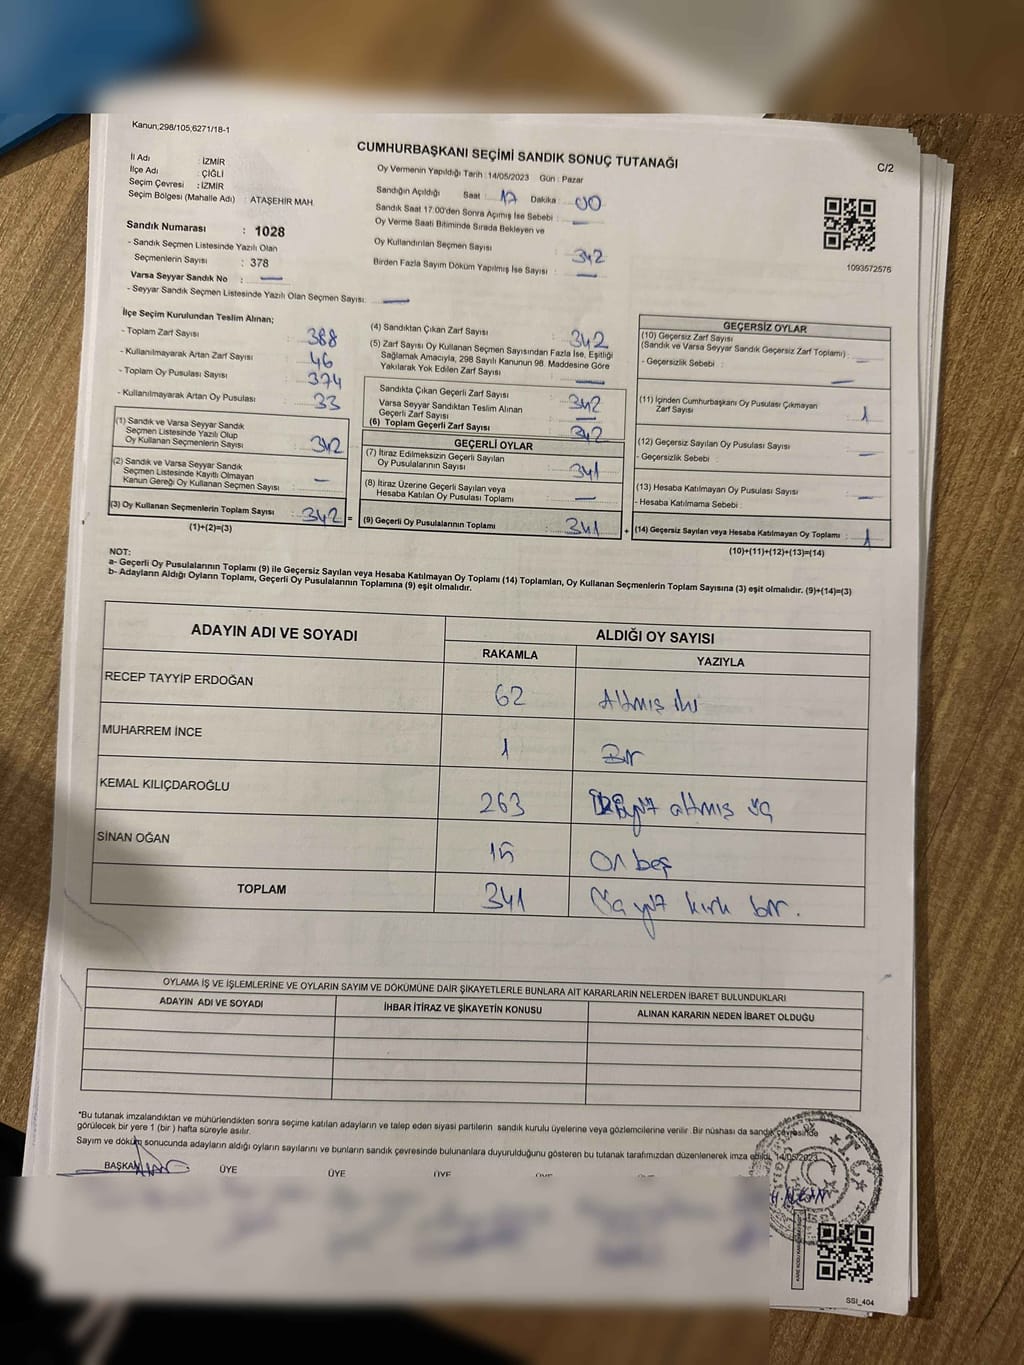 Kanun,298/105,6271/18-1
CUMHURBAŞKANI SEÇİMİ SANDIK SONUÇ TUTANAĞI
C/2
İl Adı : İZMİR
İlçe Adı : ÇİĞLİ
Seçim Çevresi : İZMİR
Seçim Bölgesi (Mahalle Adı) : ATAŞEHİR MAH.
Sandık Numarası : 1028
- Sandık Seçmen Listesinde Yazılı Olan
Seçmenlerin Sayısı : 378
Varsa Seyyar Sandık No : —
- Seyyar Sandık Seçmen Listesinde Yazılı Olan Seçmen Sayısı: —
Oy Vermenin Yapıldığı Tarih : 14/05/2023 Gün : Pazar
Sandığın Açıldığı Saat : 17 Dakika : 00
Sandık Saat 17.00'den Sonra Açılmış İse Sebebi : —
Oy Verme Saati Bitiminde Sırada Bekleyen ve
Oy Kullandırılan Seçmen Sayısı : 342
Birden Fazla Sayım Döküm Yapılmış İse Sayısı : —
1093572576
İlçe Seçim Kurulundan Teslim Alınan;
- Toplam Zarf Sayısı : 388
- Kullanılmayarak Artan Zarf Sayısı : 46
- Toplam Oy Pusulası Sayısı : 374
- Kullanılmayarak Artan Oy Pusulası : 33
(1) Sandık ve Varsa Seyyar Sandık
Seçmen Listesinde Yazılı Olup
Oy Kullanan Seçmenlerin Sayısı : 342
(2) Sandık ve Varsa Seyyar Sandık
Seçmen Listesinde Kayıtlı Olmayan
Kanun Gereği Oy Kullanan Seçmen Sayısı : —
(3) Oy Kullanan Seçmenlerin Toplam Sayısı : 342 =
(1)+(2)=(3)
(4) Sandıktan Çıkan Zarf Sayısı : 342
(5) Zarf Sayısı Oy Kullanan Seçmen Sayısından Fazla İse, Eşitliği
Sağlamak Amacıyla, 298 Sayılı Kanunun 98. Maddesine Göre
Yakılarak Yok Edilen Zarf Sayısı : —
Sandıkta Çıkan Geçerli Zarf Sayısı : 342
Varsa Seyyar Sandıktan Teslim Alınan
Geçerli Zarf Sayısı : —
(6) Toplam Geçerli Zarf Sayısı : 342
GEÇERLİ OYLAR
(7) İtiraz Edilmeksizin Geçerli Sayılan
Oy Pusulalarının Sayısı : 341
(8) İtiraz Üzerine Geçerli Sayılan veya
Hesaba Katılan Oy Pusulası Toplamı : —
(9) Geçerli Oy Pusulalarının Toplamı : 341 +
GEÇERSİZ OYLAR
(10) Geçersiz Zarf Sayısı
(Sandık ve Varsa Seyyar Sandık Geçersiz Zarf Toplamı) : —
- Geçersizlik Sebebi : —
(11) İçinden Cumhurbaşkanı Oy Pusulası Çıkmayan
Zarf Sayısı : 1
(12) Geçersiz Sayılan Oy Pusulası Sayısı : —
- Geçersizlik Sebebi :
(13) Hesaba Katılmayan Oy Pusulası Sayısı : —
- Hesaba Katılmama Sebebi :
(14) Geçersiz Sayılan veya Hesaba Katılmayan Oy Toplamı : 1
(10)+(11)+(12)+(13)=(14)
NOT:
a- Geçerli Oy Pusulalarının Toplamı (9) ile Geçersiz Sayılan veya Hesaba Katılmayan Oy Toplamı (14) Toplamları, Oy Kullanan Seçmenlerin Toplam Sayısına (3) eşit olmalıdır. (9)+(14)=(3)
b- Adayların Aldığı Oyların Toplamı, Geçerli Oy Pusulalarının Toplamına (9) eşit olmalıdır.
ADAYIN ADI VE SOYADI ALDIĞI OY SAYISI
RAKAMLA YAZIYLA
RECEP TAYYİP ERDOĞAN 62 Altmış iki
MUHARREM İNCE 1 Bir
KEMAL KILIÇDAROĞLU 263 İkiyüz altmış üç
SİNAN OĞAN 15 On beş
TOPLAM 341 Üçyüz kırk bir.
OYLAMA İŞ VE İŞLEMLERİNE VE OYLARIN SAYIM VE DÖKÜMÜNE DAİR ŞİKAYETLERLE BUNLARA AİT KARARLARIN NELERDEN İBARET BULUNDUKLARI
ADAYIN ADI VE SOYADI İHBAR İTİRAZ VE ŞİKAYETİN KONUSU ALINAN KARARIN NEDEN İBARET OLDUĞU
*Bu tutanak imzalandıktan ve mühürlendikten sonra seçime katılan adayların ve talep eden siyasi partilerin sandık kurulu üyelerine veya gözlemcilerine verilir. Bir nüshası da sandık çevresinde
görülecek bir yere 1 (bir ) hafta süreyle asılır.
Sayım ve döküm sonucunda adayların aldığı oyların sayılarını ve bunların sandık çevresinde bulunanlara duyurulduğunu gösteren bu tutanak tarafımızdan düzenlenerek imza edildi. 14/05/2023
BAŞKAN ÜYE ÜYE ÜYE ÜYE
T.C.
SSI_404